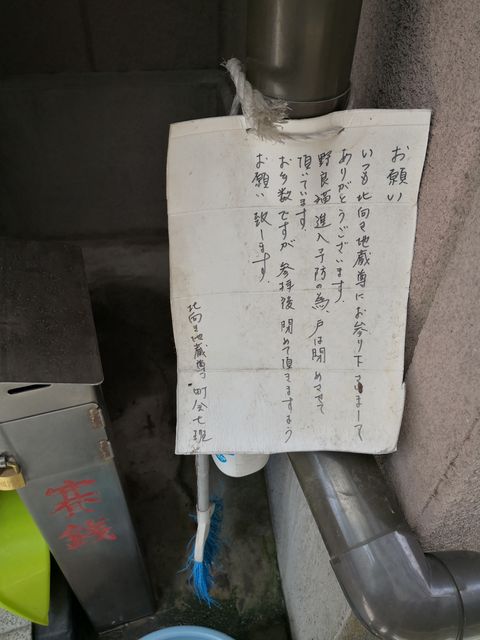 お願い
いつも北向き地蔵尊にお参り下さいまして
ありがとうございます。
野良猫進入予防の為、戸は閉めさせて
頂いています。
お手数ですが参拝後閉めて頂きますよう
お願い致します。
北向き地蔵尊 町会七現
賽銭